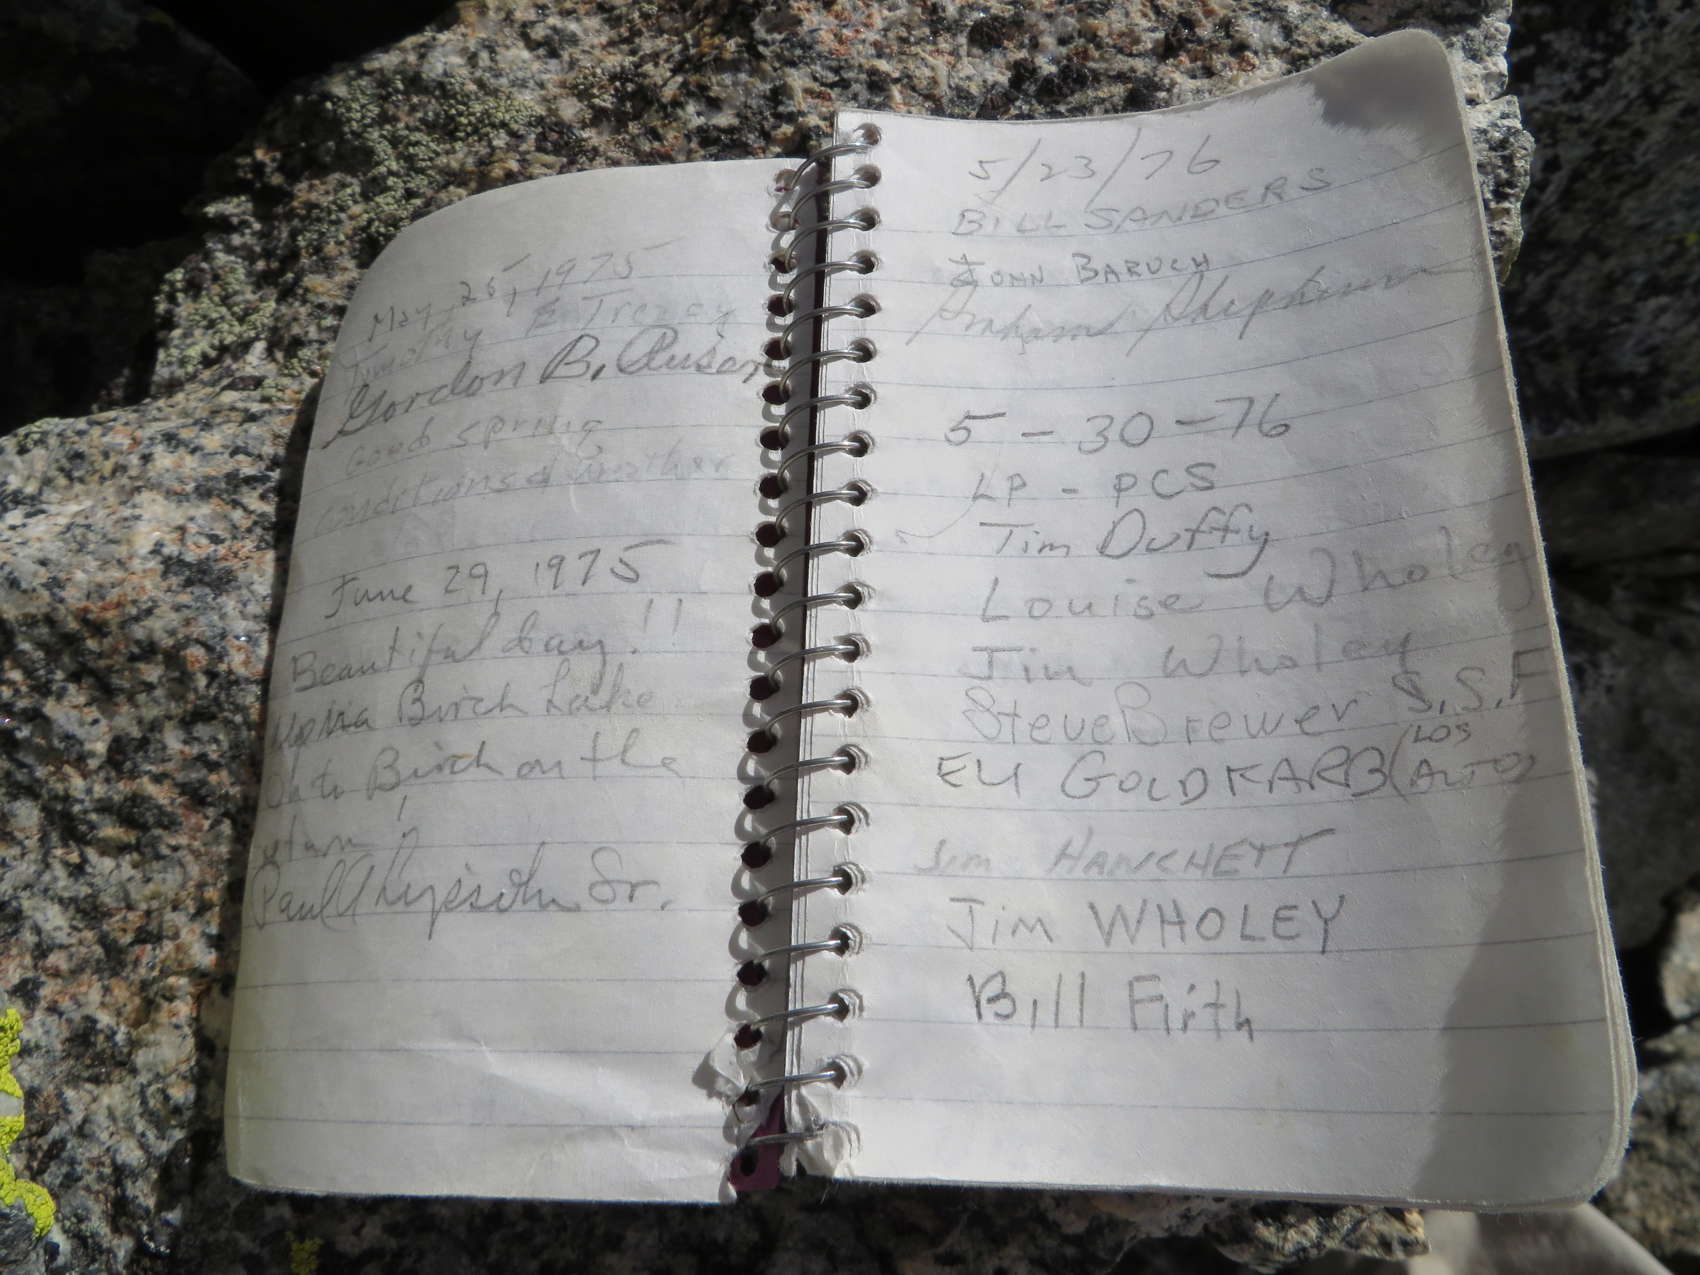 May 25, 1975
Timothy E Treacy
Gordon B.
Good spring
conditions & weather
June 29, 1975
Beautiful day!!
Up via Birch Lake
On to Birch on the
return!
Paul Sr.
5/23/76
BILL SANDERS
JOHN BARUCH
Graham
5-30-76
LP-PCS
Tim Duffy
Louise Wholey
Jim Wholey
Steve Brewer S.S.F
ELI GOLDFARB (LOS
ALTOS)
Jim HANCHETT
Jim WHOLEY
Bill Firth